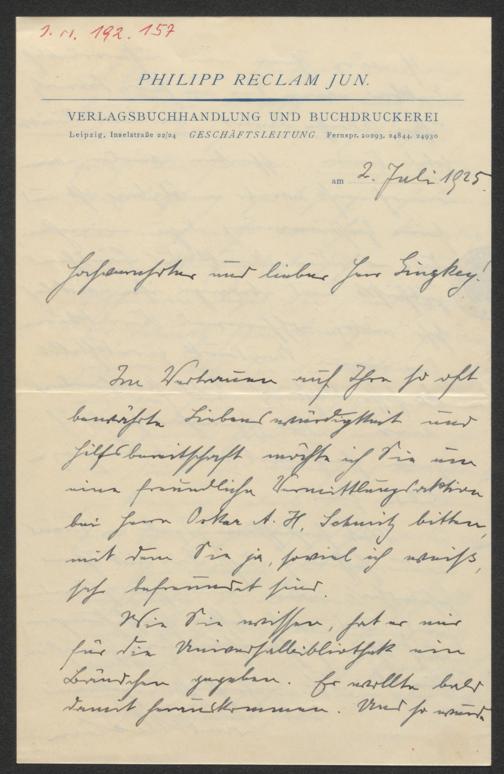 I. N. 192.157
PHILIPP RECLAM JUN.
VERLAGSBUCHHANDLUNG UND BUCHDRUCKEREI
Leipzig, Inselstraße 22/24 GESCHÄFTSLEITUNG Fernspr. 20293, 24844, 24930
am 2. Juli 1925.
Hochverehrter und lieber Herr Ginzkey!
Im Vertrauen auf Ihre so oft
bewährte Liebenswürdigkeit und
Hilfsbereitschaft möchte ich Sie um
eine freundliche Vermittlungsaktion
bei Herrn Oskar A. H. Schmitz bitten,
mit dem Sie ja, soviel ich weiß,
sehr befreundet sind.
Wie Sie wissen, hat er mir
für die Universalbibliothek ein
Bändchen gegeben. Er wollte bald
damit herauskommen. Und so wurde